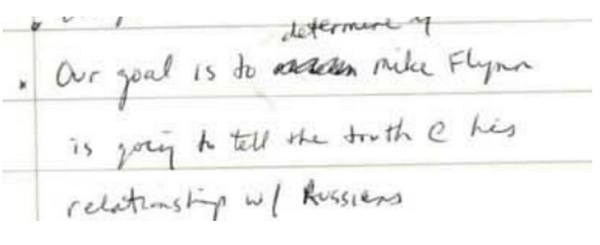 determine if
Our goal is to Mike Flynn
is going to tell the truth @ his
relationship w/ Russians